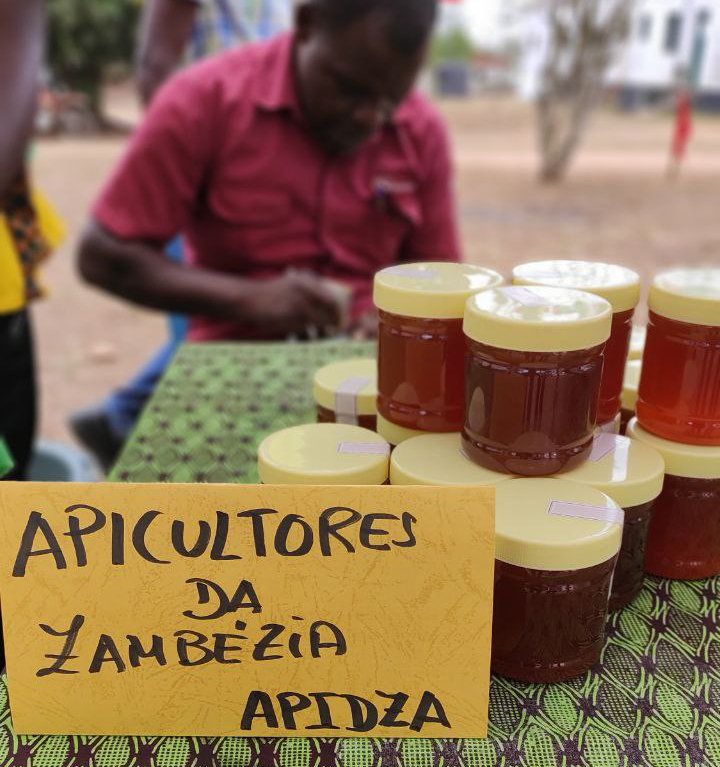 APICULTORES
DA
ZAMBÉZIA
APIDZA